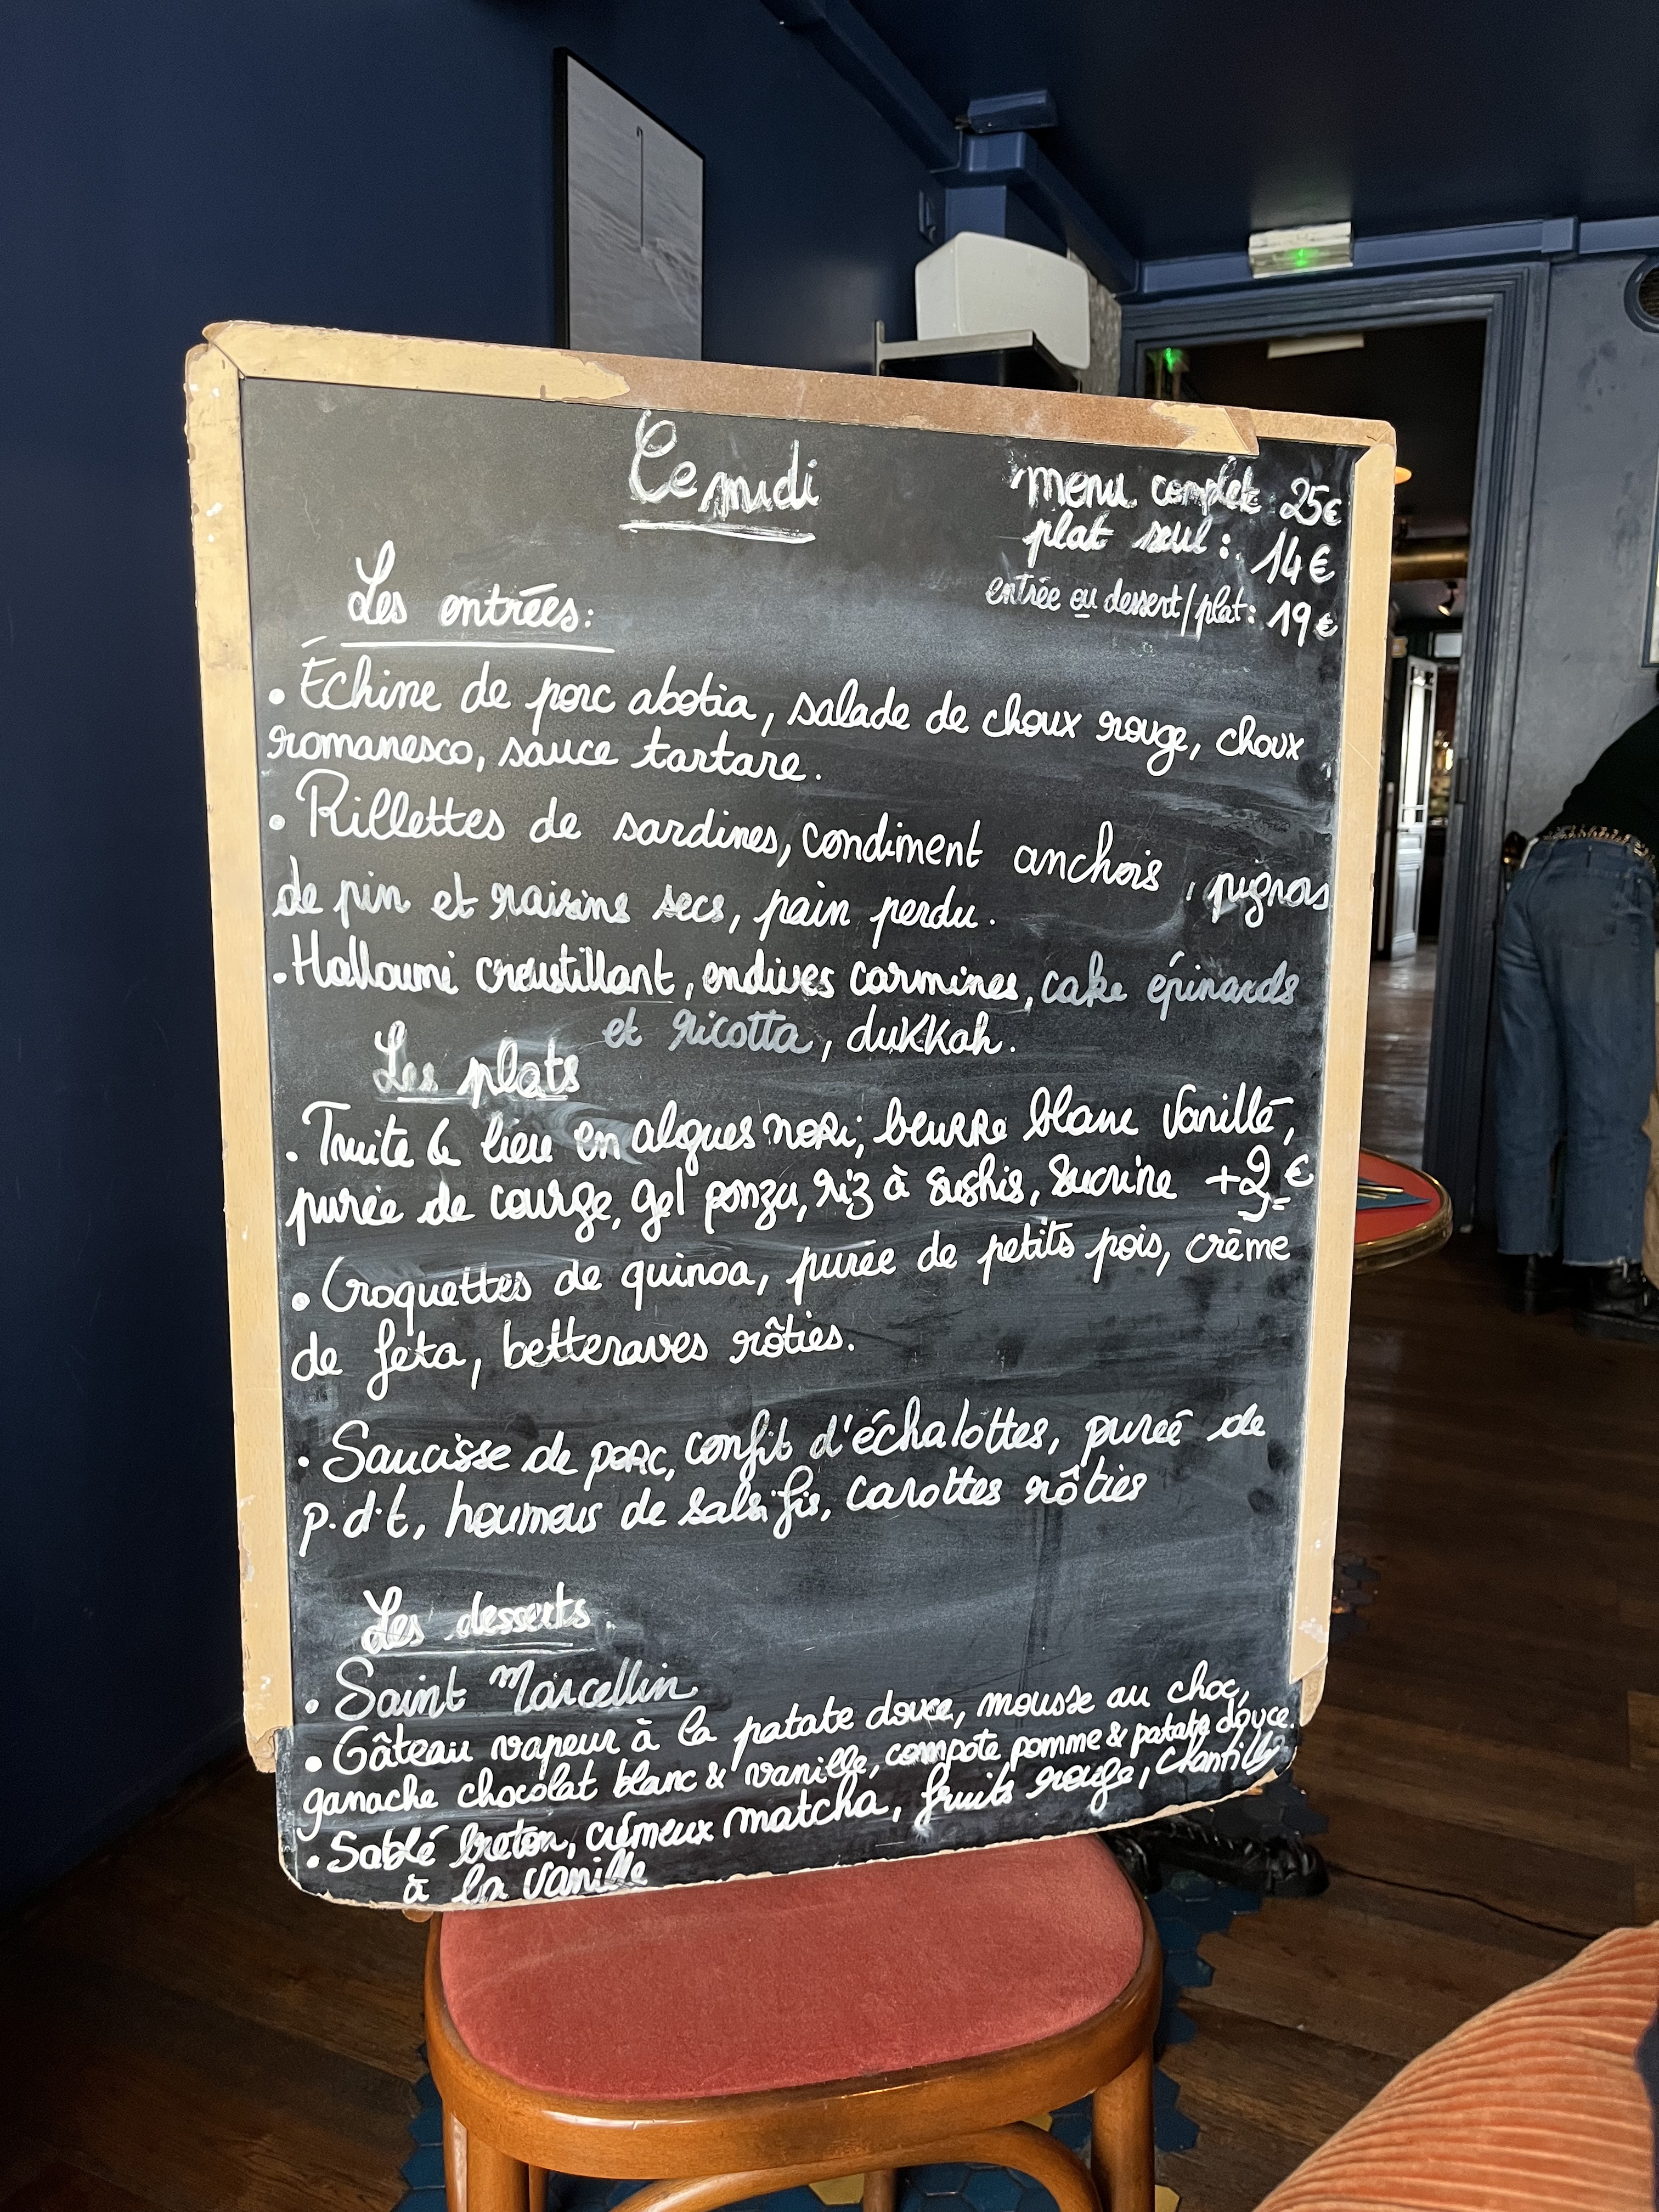 Ce midi
menu complet 25€
plat seul : 14€
entrée ou dessert/plat : 19€
Les entrées :
• Échine de porc abotia, salade de choux rouge, choux
romanesco, sauce tartare.
• Rillettes de sardines, condiment anchois, pignons
de pin et raisins secs, pain perdu.
• Halloumi croustillant, endives carmines, cake épinards
et ricotta, dukkah.
Les plats
• Truite & lieu en algues nori, beurre blanc vanillé,
purée de courge, gel ponzu, riz à sushis, sucrine +2€
• Croquettes de quinoa, purée de petits pois, crème
de feta, betteraves rôties.
• Saucisse de porc, confit d'échalottes, purée de
p.d.t, houmous de salsifis, carottes rôties
Les desserts
• Saint Marcellin
• Gâteau vapeur à la patate douce, mousse au choc,
ganache chocolat blanc & vanille, compote pomme & patate douce.
• Sablé breton, crémeux matcha, fruits rouge, chantilly
à la vanille